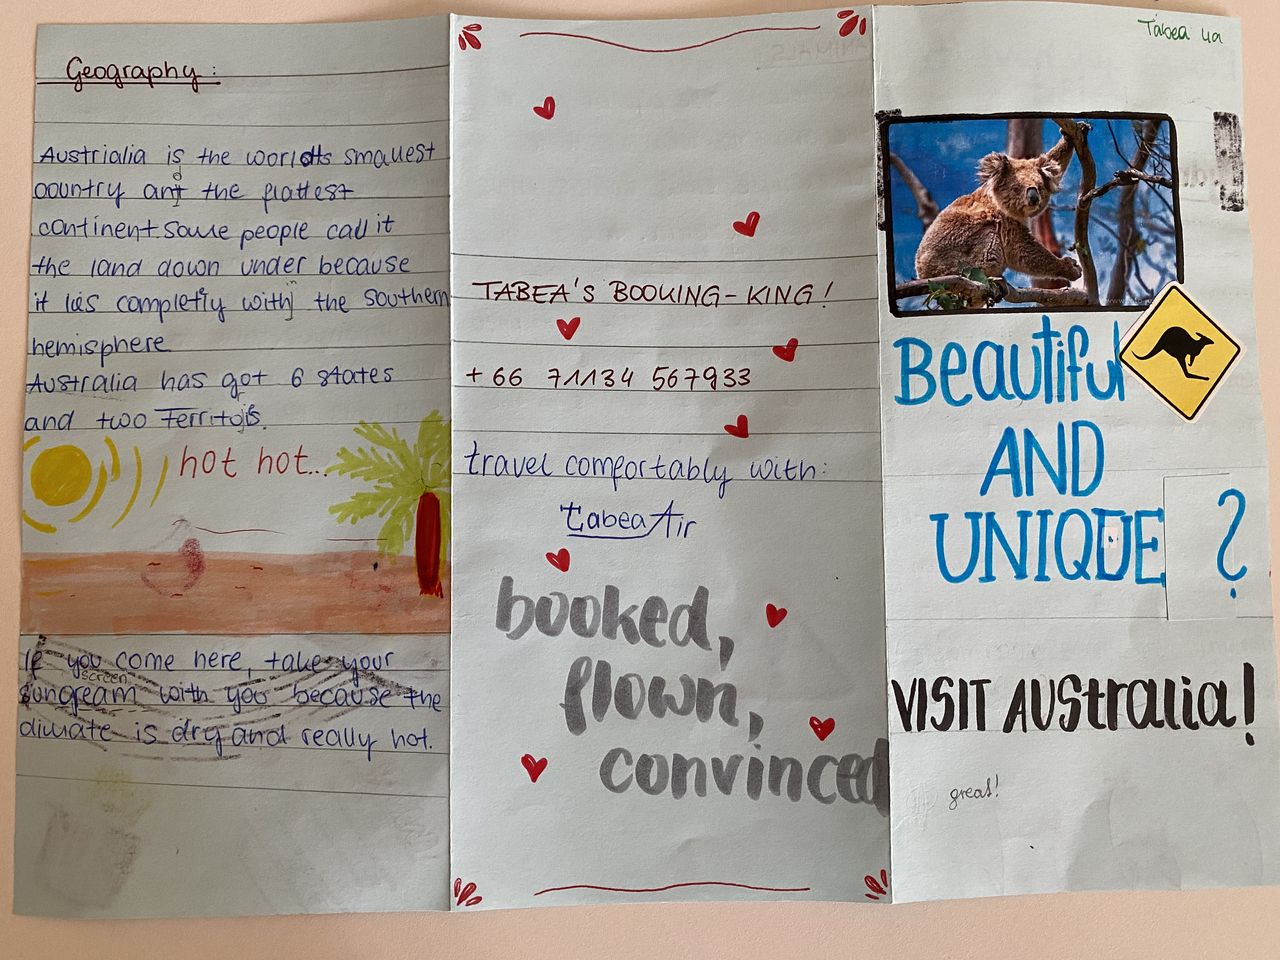 Geography:
Austrialia is the worlds smallest
country and the flattest
continent. Some people call it
the land down under because
it lies completly within the southern
hemisphere
Australia has got 6 states
and two Territojs.
hot hot...
If you come here, take your
screen
sungream with you because the
climate is dry and really hot.
ANIMALS
TABEA'S BOOKING-KING!
+66 71134 567933
travel comfortably with:
tabeaAir
booked,
flown,
convinced
Tabea 4a
Beautiful
AND
UNIQUE?
VISIT AUStralia!
great!